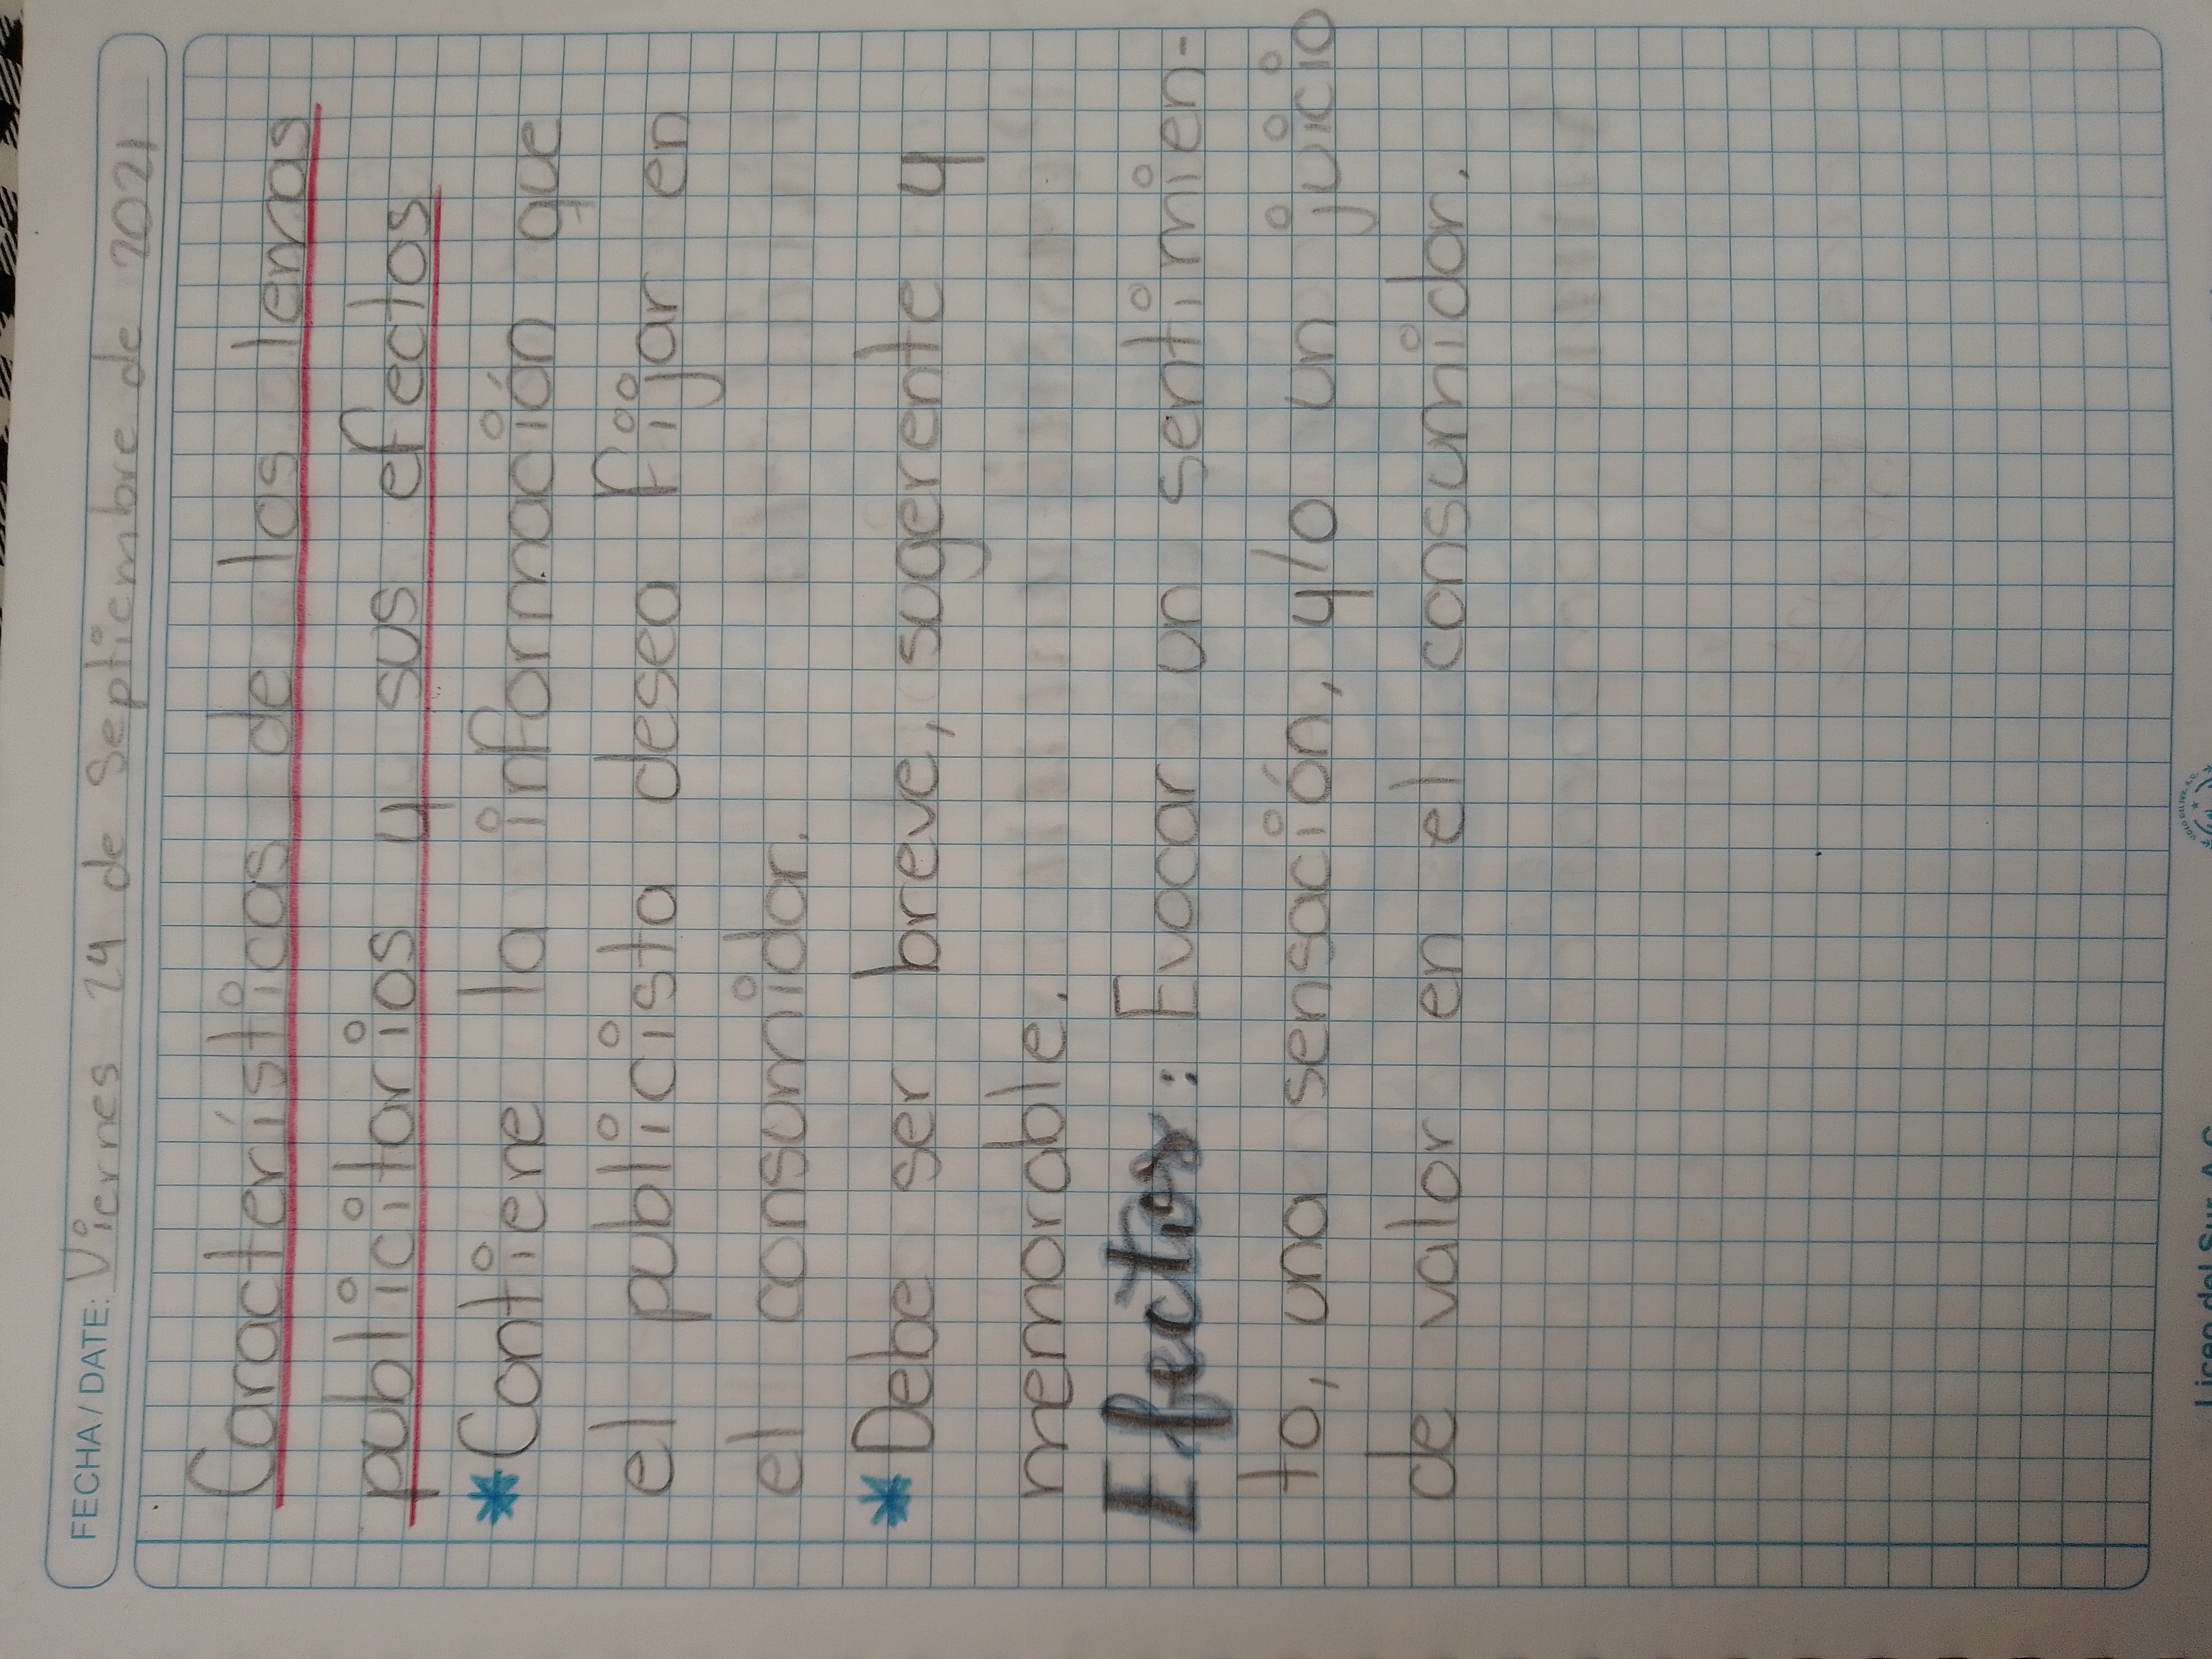 FECHA/DATE: Viernes 24 de Septiembre de 2021
Características de los lemas
publicitarios y sus efectos
* Contiene la información que
el publicista desea fijar en
el consumidor.
* Debe ser breve, sugerente y
memorable.
Efectos: Evocar un sentimien-
to, una sensación, y/o un juicio
de valor en el consumidor.
Liceo del Sur, A.C.